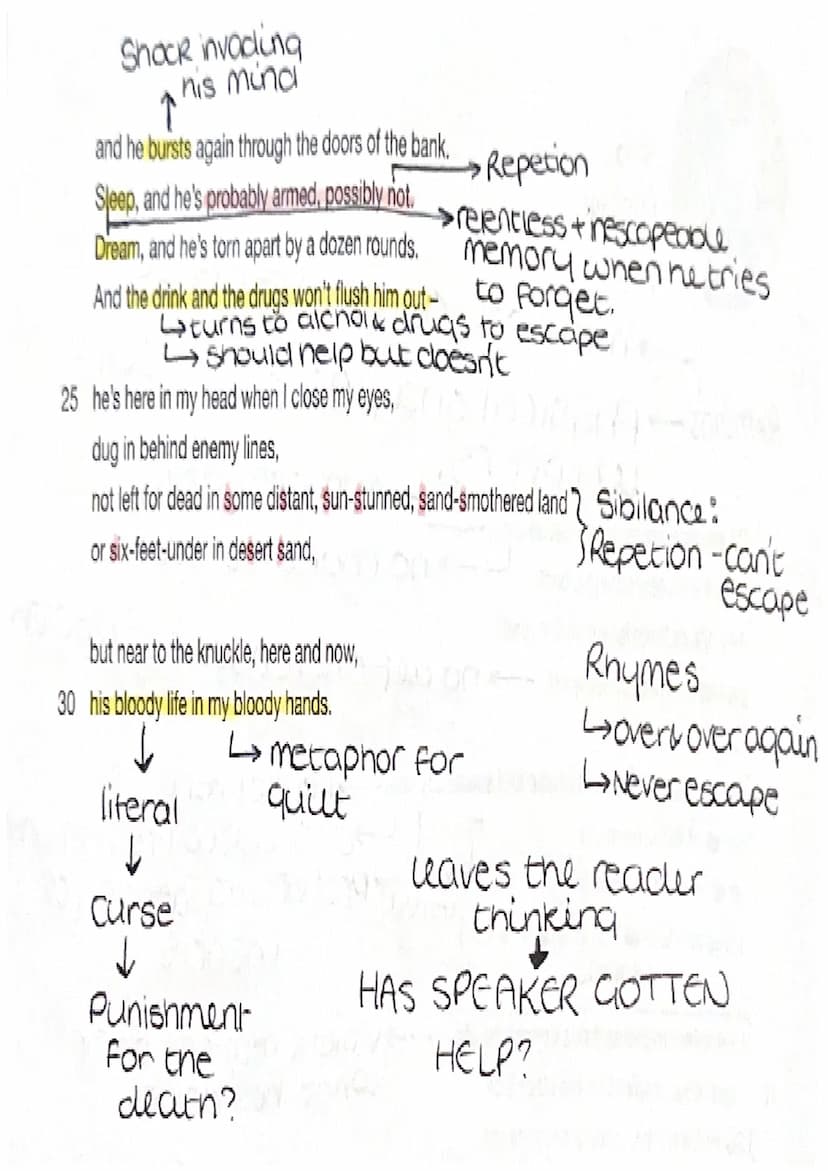 Shock invading
his mind
and he bursts again through the doors of the bank.
Repetion
Sleep, and he's probably armed, possibly not.
relentless + inescapeable
Dream, and he's torn apart by a dozen rounds.
memory when he tries
And the drink and the drugs won't flush him out –
to forget.
↳ turns to alchol & drugs to escape
↳ should help but doesn't
25 he's here in my head when I close my eyes,
dug in behind enemy lines,
not left for dead in some distant, sun-stunned, sand-smothered land
Sibilance:
or six-feet-under in desert sand,
Repetion - can't
escape
but near to the knuckle, here and now,
Rhymes
30 his bloody life in my bloody hands.
↳ over & over again
↳ Never escape
↳ metaphor for
guilt
literal
Curse
Punishment
for the
death?
leaves the reader
thinking
HAS SPEAKER GOTTEN
HELP?